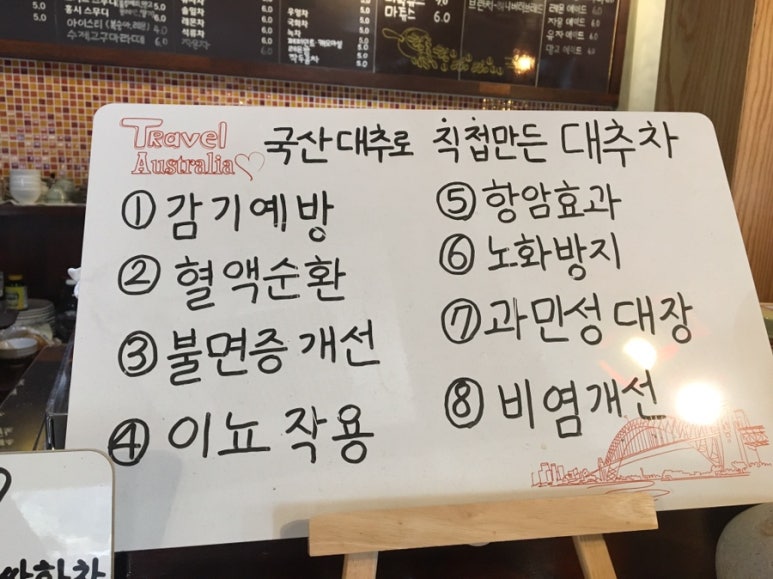 홍시 스무디
아이스티 (복숭아, 레몬)
수제고구마라떼
레몬차
석류차
자몽차
6.0
6.0
6.0
유명차
국화차
녹차
5.0
5.0
5.0
5.0
6.0
레몬 에이드
자몽 에이드
유자 에이드
망고 에이드
Travel
Australia
국산대추로 직접만든 대추차
① 감기예방
② 혈액순환
③ 불면증개선
④ 이뇨작용
⑤ 항암효과
⑥ 노화방지
⑦ 과민성대장
⑧ 비염개선